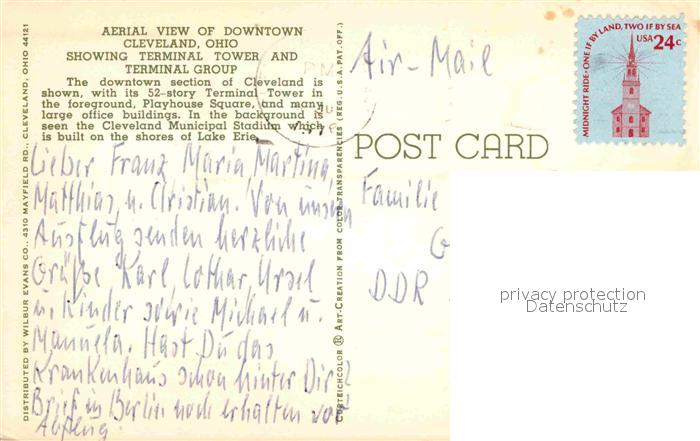 AERIAL VIEW OF DOWNTOWN
CLEVELAND, OHIO
SHOWING TERMINAL TOWER AND
TERMINAL GROUP
The downtown section of Cleveland is
shown, with its 52-story Terminal Tower in
the foreground, Playhouse Square, and many
large office buildings. In the background is
seen the Cleveland Municipal Stadium which
is built on the shores of Lake Erie.
Lieber Franz, Maria, Martina,
Matthias u. Christian. Von unsern
Ausflug senden herzliche
Grüße Karl, Lothar, Ursel
u. Kinder sowie Michael u.
Manuela. Hast Du das
Krankenhaus schon hinter Dir?
Brief in Berlin noch erhalten vor
Abflug.
DISTRIBUTED BY WILBUR EVANS CO., 4310 MAYFIELD RD., CLEVELAND, OHIO 44121
CURTEICHCOLOR ART-CREATION FROM COLOR TRANSPARENCIES (REG. U.S.A. PAT. OFF.)
Air-Mail
MIDNIGHT RIDE-ONE IF BY LAND, TWO IF BY SEA
USA 24c
PM
POST CARD
Familie
G
DDR
privacy protection
Datenschutz